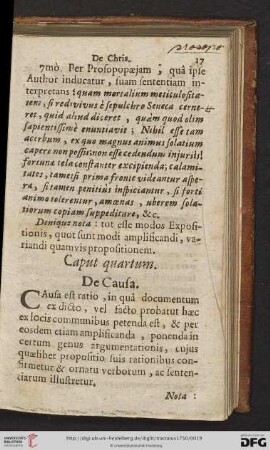 De Chria. 17
7mò. Per Prosopopæjam; quâ ipse
Author inducatur, suam sententiam in-
terpretans: quàm mortalium meticulositatem
tens, si redivivus è sepulchro Seneca cerne-
ret, quid aliud diceret, quàm quod olim
sapientissimè enuntiavit; Nihil esse tam
acerbum, ex quo magnus animus solatium
capere non possit; non esse cedendum injuriis!
fortunæ tela constanter excipienda; calami-
tates, tametsi prima fronte videantur aspe-
ra, si tamen penitiùs inspiciantur, si forti
animo tolerentur, amœnas, uberem sola-
tiorum copiam suppeditare, &c.
Denique nota: tot esse modos Expo-
sitionis, quot sunt modi amplificandi, va-
riandi quamvis propositionem.
Caput quartum.
De Causa.
CAusa est ratio, in quâ documentum
ex dicto, vel facto probatur hæc
ex locis communibus petenda est, & per
eosdem etiam amplificanda, ponenda in
certum genus argumentationis, cujus
quælibet propositio suis rationibus con-
firmetur & ornatu verborum, ac senten-
tiarum illustretur.
Nota:
http://digi.ub.uni-heidelberg.de/diglit/tractatus1750/0019
© Universitätsbibliothek Heidelberg
gefördert durch die
DFG